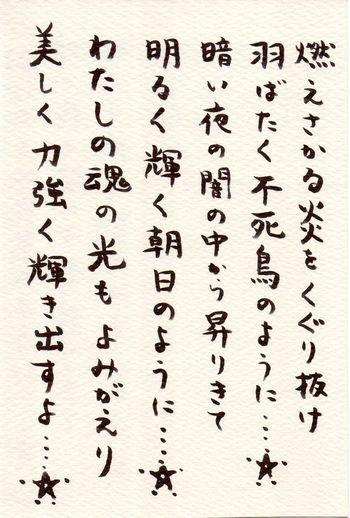 燃えさかる炎をくぐり抜け
羽ばたく不死鳥のように…☆
暗い夜の闇の中から昇りきて
明るく輝く朝日のように…☆
わたしの魂の光もよみがえり
美しく力強く輝き出すよ…☆